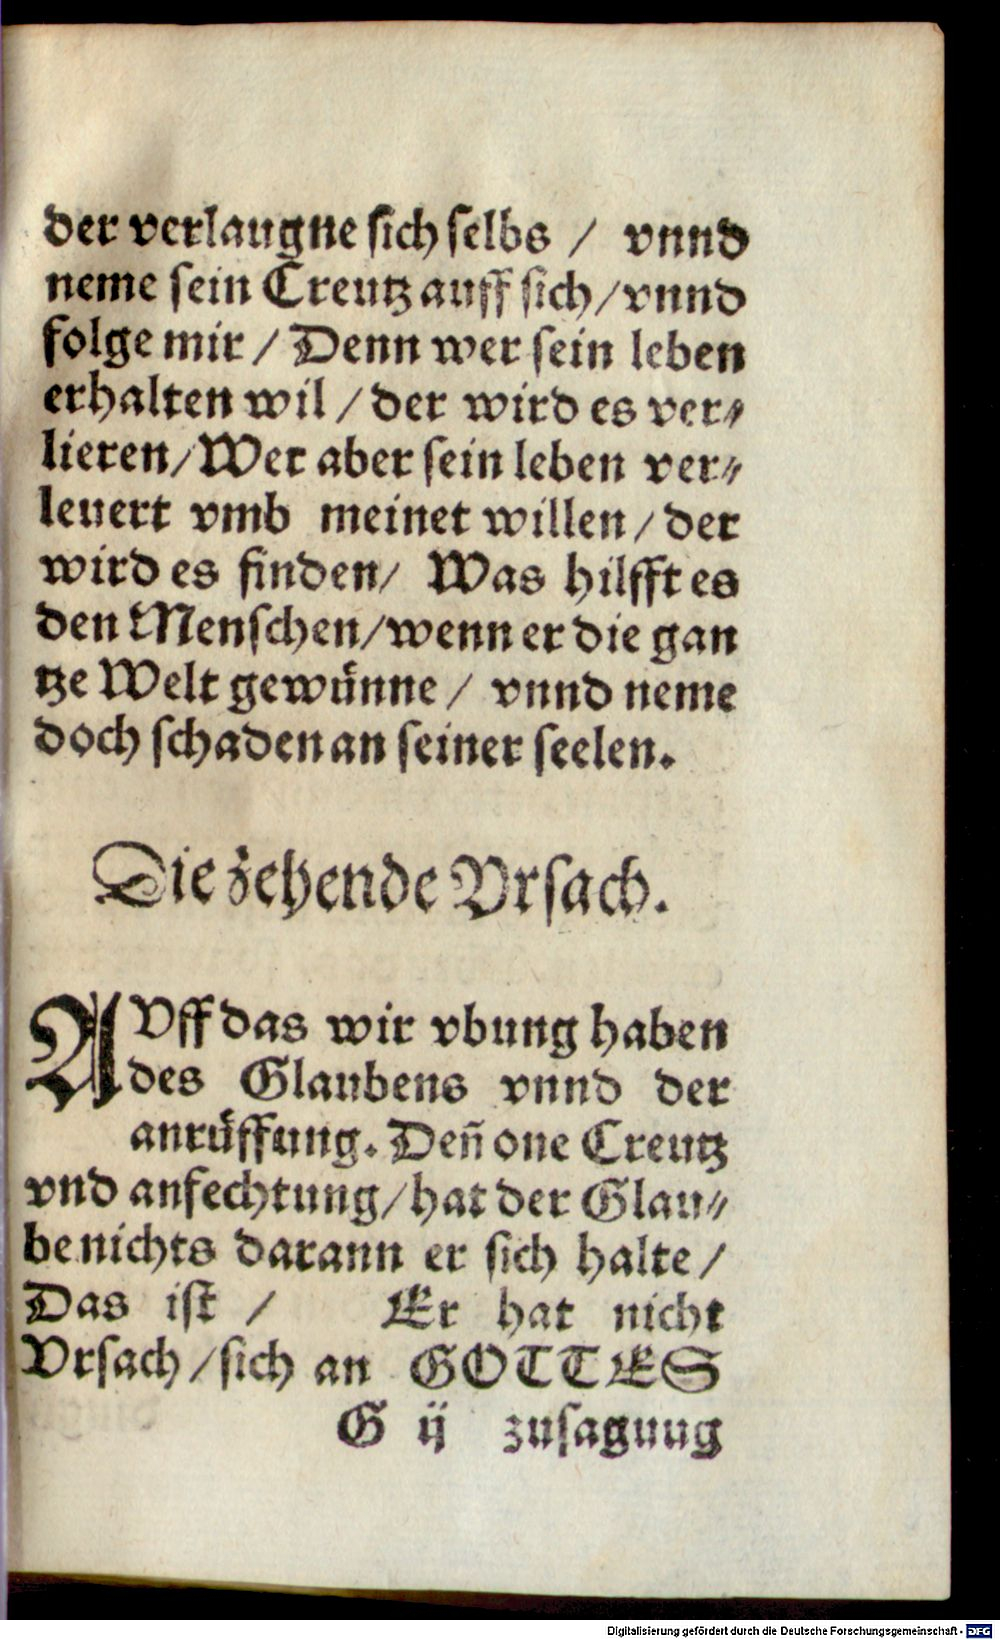 der verlaugne sich selbs / vnnd
neme sein Creutz auff sich/vnnd
folge mir / Denn wer sein leben
erhalten wil / der wird es ver-
lieren/Wer aber sein leben ver-
leuert vmb meinet willen/ der
wird es finden/ Was hilfft es
den Menschen/wenn er die gan
tze Welt gewünne / vnnd neme
doch schaden an seiner seelen.
Die zehende Vrsach.
AVff das wir vbung haben
des Glaubens vnnd der
anrüffung. Deñ one Creutz
vnd anfechtung/hat der Glau-
be nichts darann er sich halte/
Das ist / Er hat nicht
Vrsach/sich an GOTTES
G ij zusagung
Digitalisierung gefördert durch die Deutsche Forschungsgemeinschaft - DFG